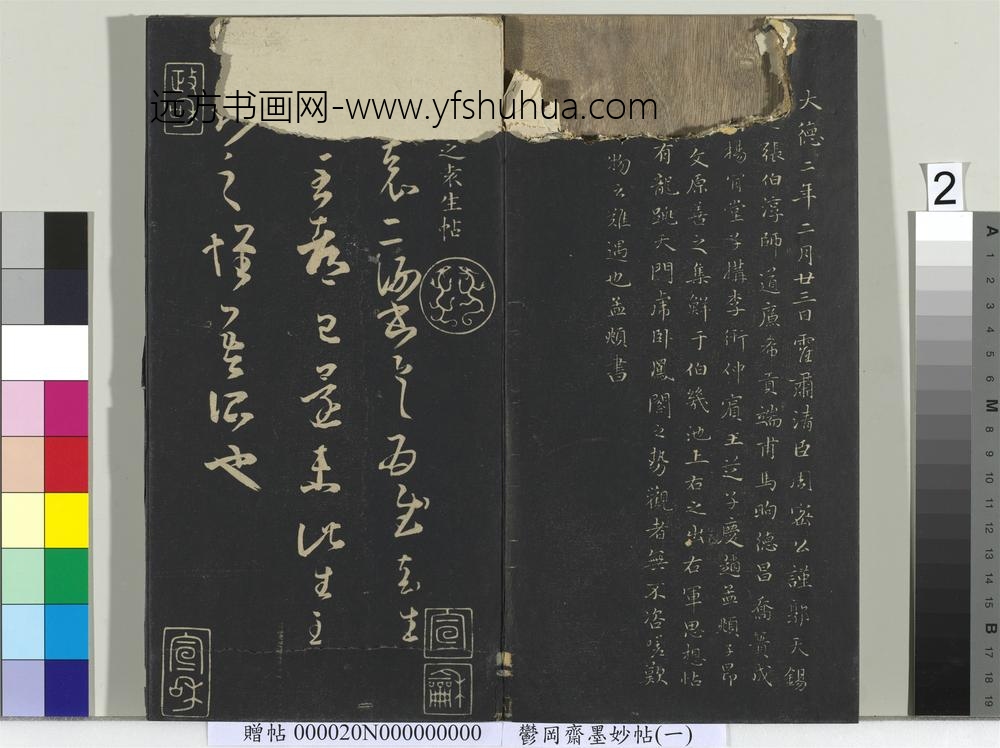 大德二年二月廿三日霍肅清臣周密公謹郭天錫
張伯淳師道廉希貢端甫馬昫德昌喬簣成
楊肯堂子構李衎仲賓王芝子慶趙孟頫子昂
文原善之集鮮于伯幾池上右之出右軍思想帖
有龍跳天門虎卧鳳閣之勢觀者無不咨嗟歎
物之難遇也孟頫書
之袁生帖
袁二謝書具為慰袁生
至都已還未此生至
到之懷吾所也
宣龢
宣和
政
远方书画网-www.yfshuhua.com
2
A 1 2 3 4 5 6 M 8 9 10 11 12 13 14 15 B 17 18 19
贈帖 000020N000000000 鬱岡齋墨妙帖(一)